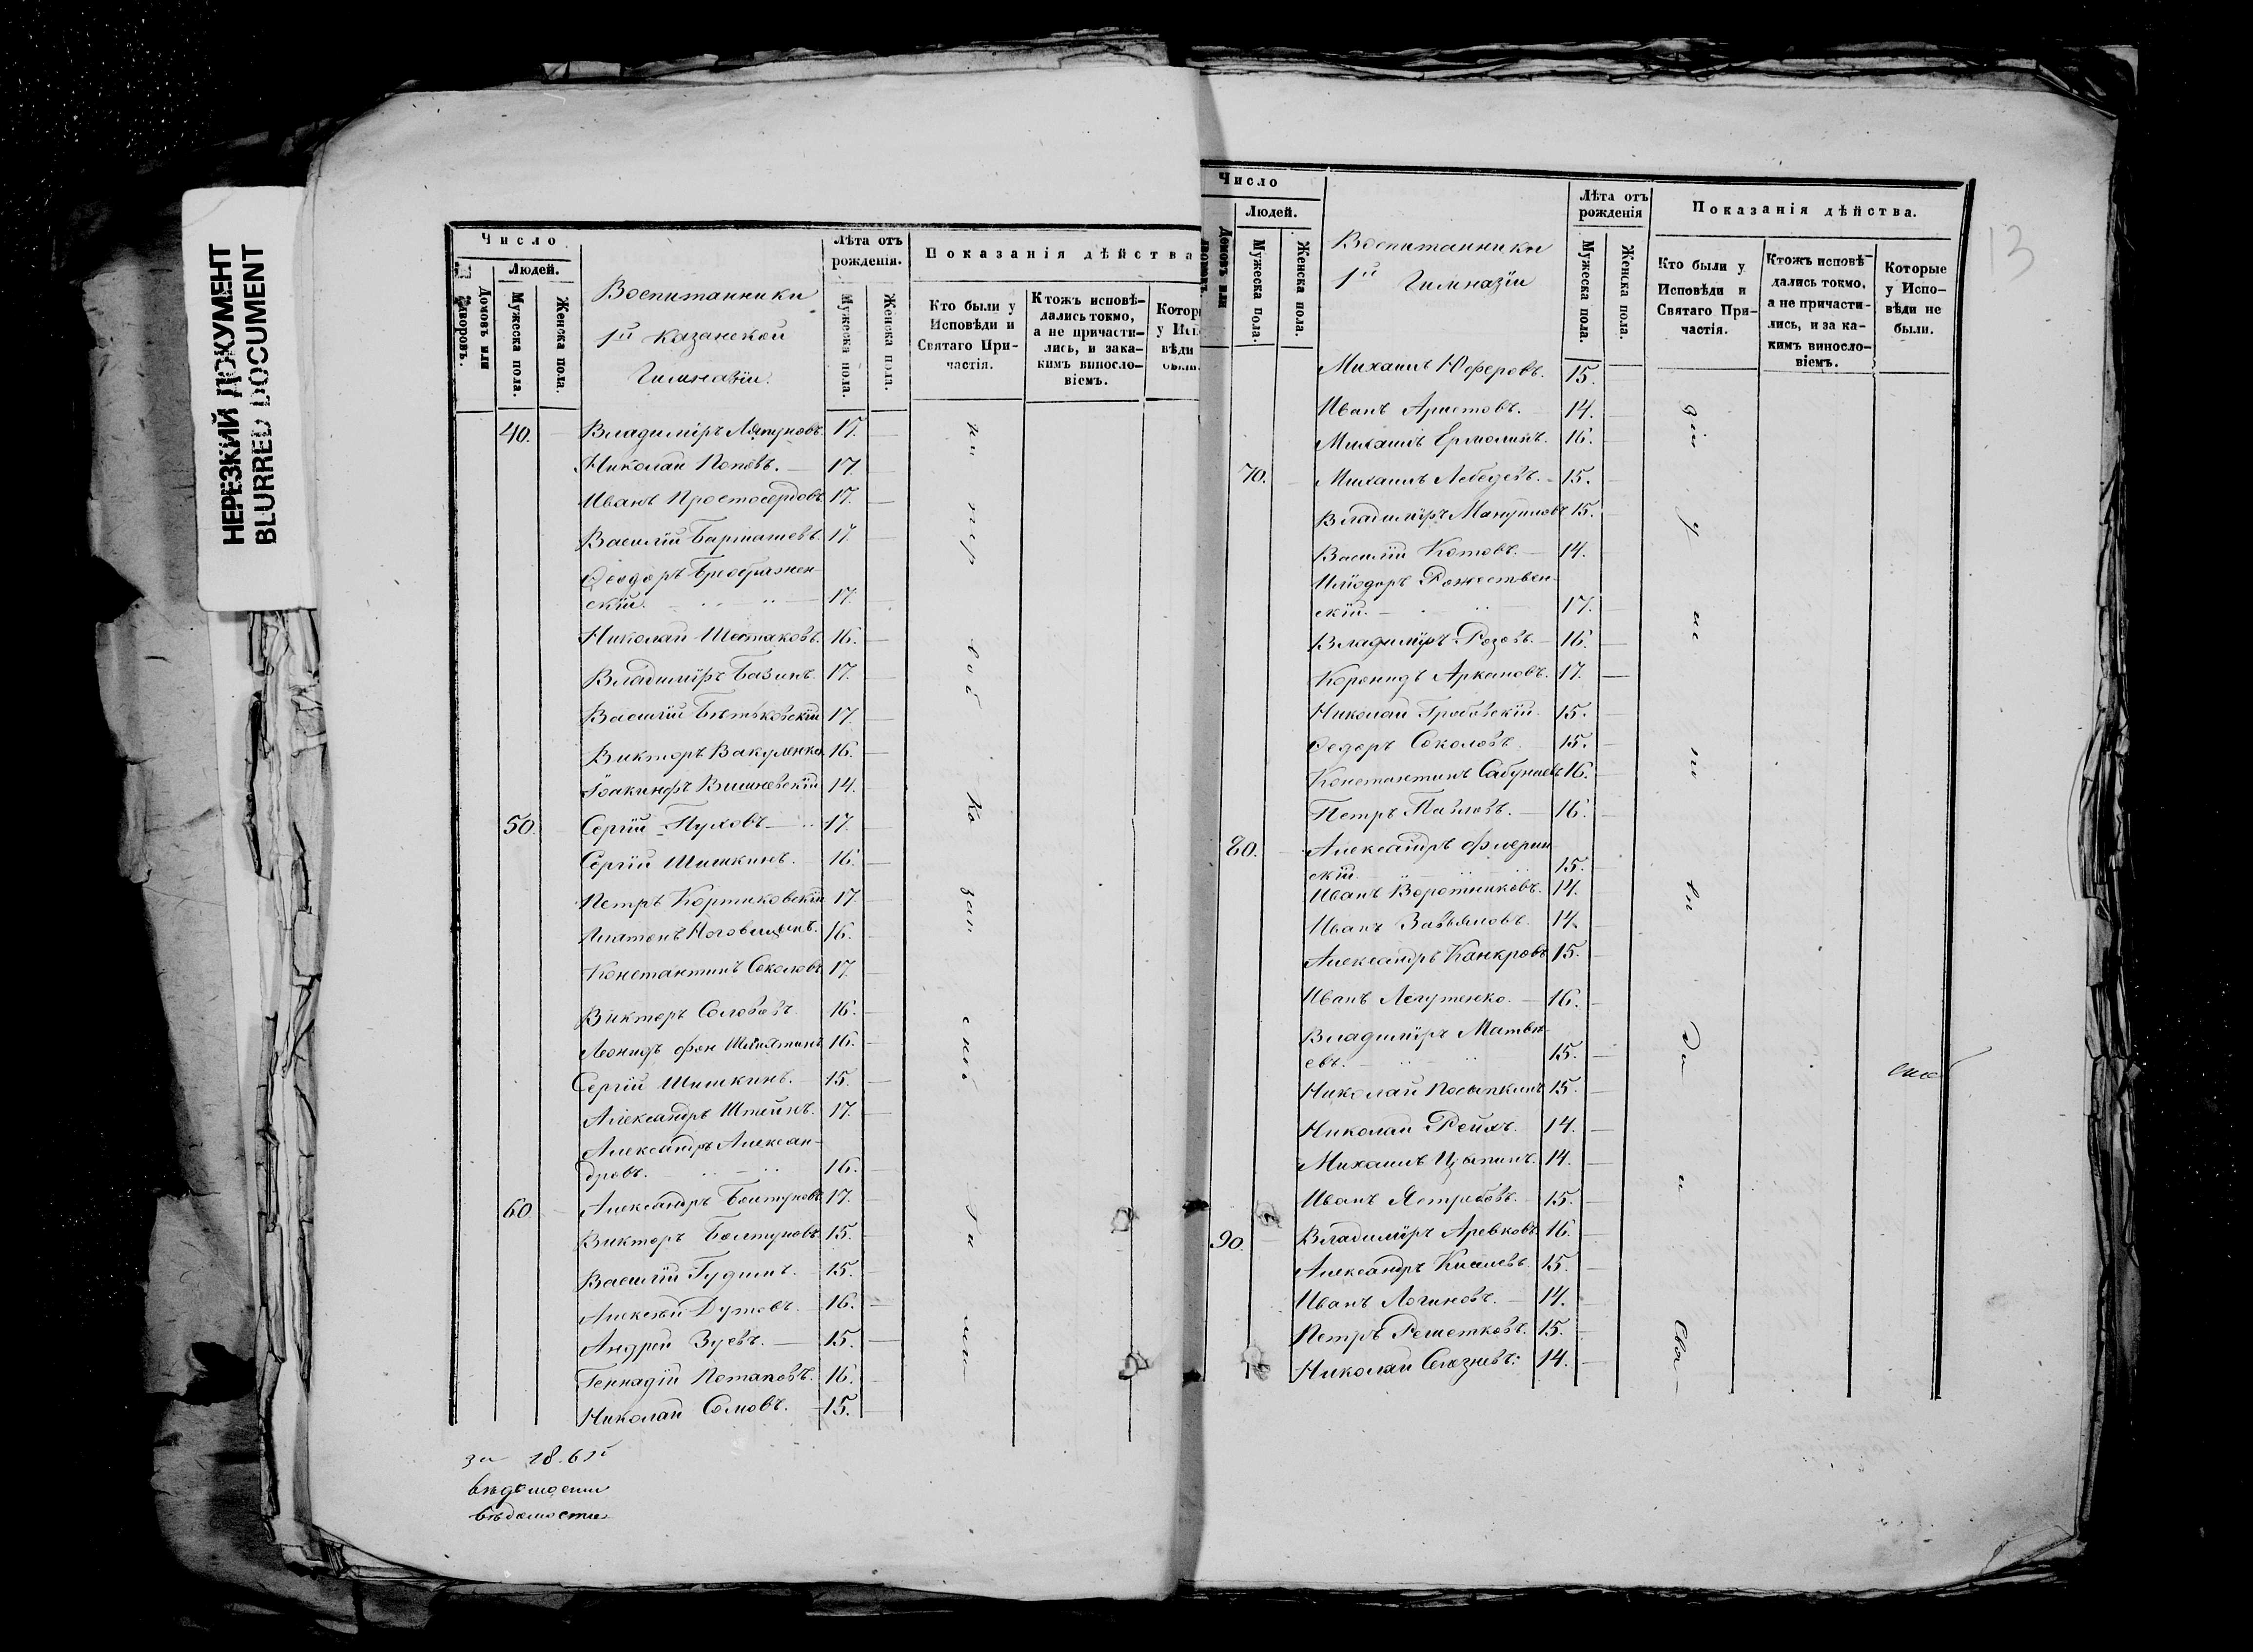 НЕРЕЗКИЙ ДОКУМЕНТ
BLURRED DOCUMENT
Число
Людей.
Домовъ или дворовъ.
Мужеска пола.
Женска пола.
Воспитанники
1й Казанской
Гимназіи.
Лѣта отъ рожденія.
Мужеска пола.
Женска пола.
Показанія дѣйства
Кто были у Исповѣди и Святаго Причастія.
Ктожъ исповѣдались токмо, а не причастились, и закакимъ винословіемъ.
40. Владиміръ Ляпуновъ. 17.
Николай Поповъ. 17.
Иванъ Простосердовъ. 17.
Василій Барташевъ. 17.
Ѳеодоръ Преображен-
скій. 17.
Николай Шестаковъ. 16.
Владиміръ Базинъ. 17.
Василій Бетьковскій 17.
Викторъ Вакуленко. 16.
Іоакинфъ Вишневскій 14.
50. Сергій Пуховъ 17.
Сергій Шишкинъ. 16.
Петръ Кортиковскій 17.
Платонъ Ноговицынъ. 16.
Константинъ Соколовъ 17.
Викторъ Соловьевъ. 16.
Леонидъ фон 16.
Сергій Шишкинъ. 15.
Александръ Штейнъ. 17.
Александръ Алексан-
дровъ. 16.
60 Александръ Болтуновъ 17.
Викторъ Болтуновъ. 15.
Василій Гудимъ. 15.
Алексѣй Дутовъ. 16.
Андрей Зуевъ. 15.
Геннадій Потаповъ. 16.
Николай Сомовъ. 15.
вѣдомости
13
Число
Людей.
Домовъ или дворовъ.
Мужеска пола.
Женска пола.
Воспитанники
1й Гимназіи
Лѣта отъ рожденія
Мужеска пола.
Женска пола.
Показанія дѣйства.
Кто были у Исповѣди и Святаго Причастія.
Ктожъ исповѣдались токмо, а не причастились, и за какимъ винословіемъ.
Которые у Исповѣди не были.
Михаилъ Юферовъ. 15.
Иванъ Аристовъ. 14.
Михаилъ Ермолинъ. 16.
70. Михаилъ Лебедевъ. 15.
Владиміръ 15.
Василій Котовъ. 14.
Иліодоръ Рождествен-
скій. 17.
Владиміръ Розовъ. 16.
Коронидъ Аркановъ. 17.
Николай Гробовскій. 15.
Ѳедоръ Соколовъ. 15.
Константинъ 16.
Петръ Павловъ. 16.
80. Александръ
скій. 15.
Иванъ Воротниковъ. 14.
Иванъ Завьяловъ. 14.
Александръ Канкровъ 15.
Иванъ Легутенко. 16.
Владиміръ Матвѣ-
евъ. 15.
Николай Посыпкинъ 15.
Николай Рейхъ. 14.
Михаилъ Цыпинъ. 14.
Иванъ Ястребовъ. 15.
90. Владиміръ Аревковъ. 16.
Александръ Киселевъ. 15.
Иванъ Логиновъ. 14.
Петръ Решетковъ. 15.
Николай Селезневъ. 14.